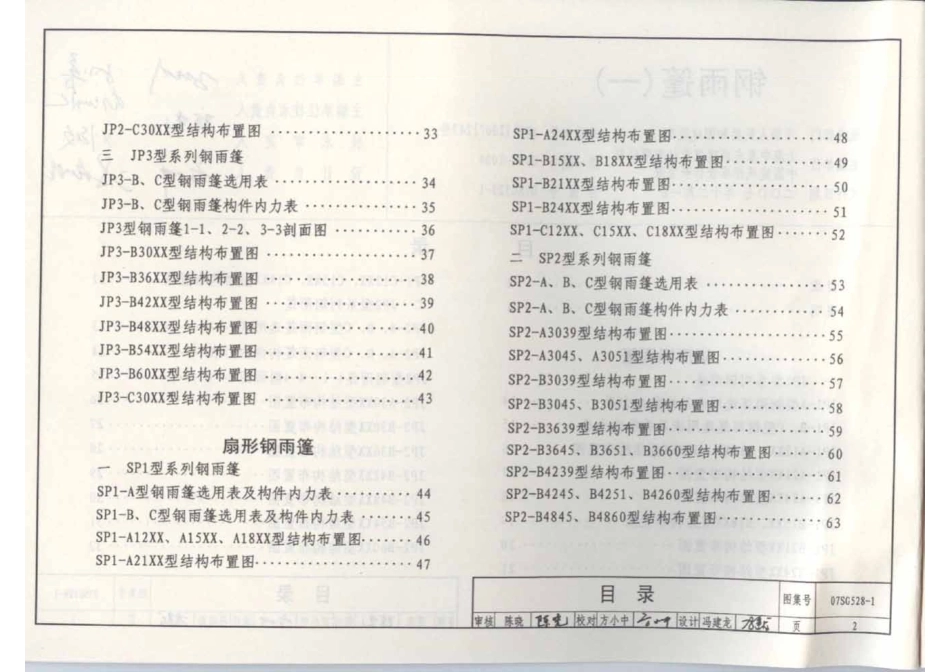 JP2-C30XX型结构布置图 ················ 33
三 JP3型系列钢雨篷
JP3-B、C型钢雨篷选用表 ················ 34
JP3-B、C型钢雨篷构件内力表 ············ 35
JP3型钢雨篷1-1、2-2、3-3剖面图 ········· 36
JP3-B30XX型结构布置图 ················ 37
JP3-B36XX型结构布置图 ················ 38
JP3-B42XX型结构布置图 ················ 39
JP3-B48XX型结构布置图 ················ 40
JP3-B54XX型结构布置图 ················ 41
JP3-B60XX型结构布置图 ················ 42
JP3-C30XX型结构布置图 ················ 43
扇形钢雨篷
一 SP1型系列钢雨篷
SP1-A型钢雨篷选用表及构件内力表 ········ 44
SP1-B、C型钢雨篷选用表及构件内力表 ····· 45
SP1-A12XX、A15XX、A18XX型结构布置图 ····· 46
SP1-A21XX型结构布置图 ················ 47
SP1-A24XX型结构布置图 ················ 48
SP1-B15XX、B18XX型结构布置图 ·········· 49
SP1-B21XX型结构布置图 ················ 50
SP1-B24XX型结构布置图 ················ 51
SP1-C12XX、C15XX、C18XX型结构布置图 ····· 52
二 SP2型系列钢雨篷
SP2-A、B、C型钢雨篷选用表 ············· 53
SP2-A、B、C型钢雨篷构件内力表 ·········· 54
SP2-A3039型结构布置图 ················ 55
SP2-A3045、A3051型结构布置图 ·········· 56
SP2-B3039型结构布置图 ················ 57
SP2-B3045、B3051型结构布置图 ·········· 58
SP2-B3639型结构布置图 ················ 59
SP2-B3645、B3651、B3660型结构布置图 ····· 60
SP2-B4239型结构布置图 ················ 61
SP2-B4245、B4251、B4260型结构布置图 ····· 62
SP2-B4845、B4860型结构布置图 ·········· 63
目 录 图集号 07SG528-1
审核 陈晓 校对 方小中 设计 冯建龙 页 2